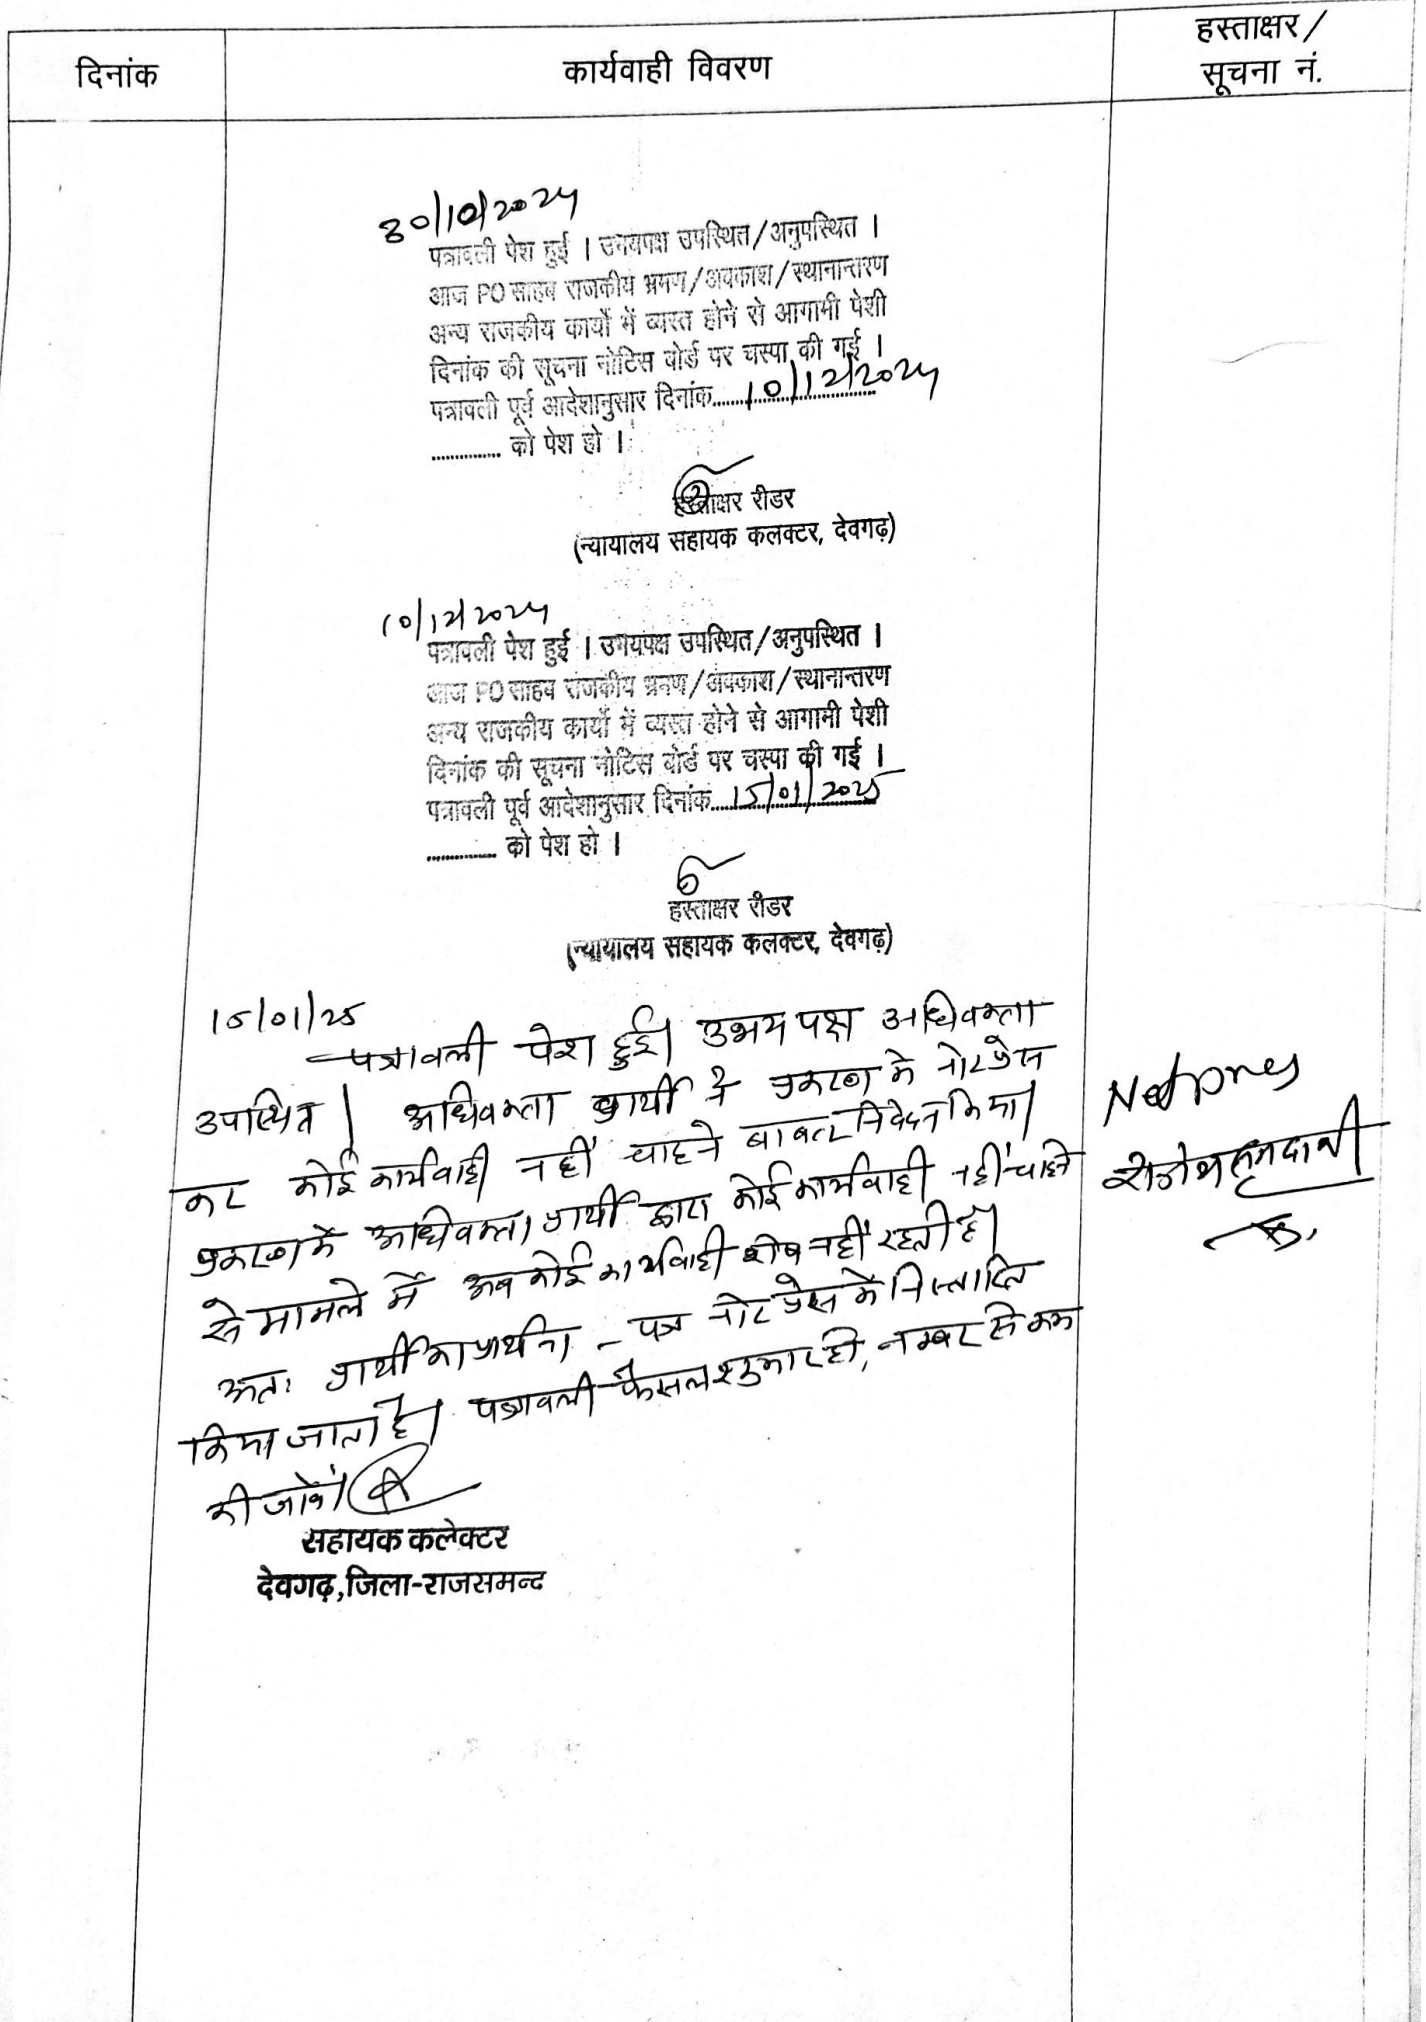 दिनांक
कार्यवाही विवरण
हस्ताक्षर/
सूचना नं.
30/10/2024
पत्रावली पेश हुई । उभयपक्ष उपस्थित/अनुपस्थित ।
आज PO साहब राजकीय भ्रमण/अवकाश/स्थानान्तरण
अन्य राजकीय कार्यो में व्यस्त होने से आगामी पेशी
दिनांक की सूचना नोटिस बोर्ड पर चस्पा की गई ।
पत्रावली पूर्व आदेशानुसार दिनांक......10/12/2024
............... को पेश हो ।
हस्ताक्षर रीडर
(न्यायालय सहायक कलक्टर, देवगढ़)
10/12/2024
पत्रावली पेश हुई । उभयपक्ष उपस्थित/अनुपस्थित ।
आज PO साहब राजकीय भ्रमण/अवकाश/स्थानान्तरण
अन्य राजकीय कार्यो में व्यस्त होने से आगामी पेशी
दिनांक की सूचना नोटिस बोर्ड पर चस्पा की गई ।
पत्रावली पूर्व आदेशानुसार दिनांक......15/01/2025
............... को पेश हो ।
हस्ताक्षर रीडर
(न्यायालय सहायक कलक्टर, देवगढ़)
15/01/25
पत्रावली पेश हुई। उभय पक्ष अधिवक्ता
उपस्थित। अधिवक्ता प्रार्थी ने प्रकरण में नोट प्रेस
कर कोई कार्यवाही नहीं चाहने बाबत निवेदन किया।
प्रकरण में अधिवक्ता प्रार्थी द्वारा कोई कार्यवाही नहीं चाहने
से मामले में अब कोई कार्यवाही शेष नहीं रहती है।
अतः प्रार्थी का प्रार्थना-पत्र नोट प्रेस में निस्तारित
किया जाता है। पत्रावली फैसल शुमार हो, नम्बर से कम
की जावे।
सहायक कलेक्टर
देवगढ़, जिला-राजसमन्द
Not pres